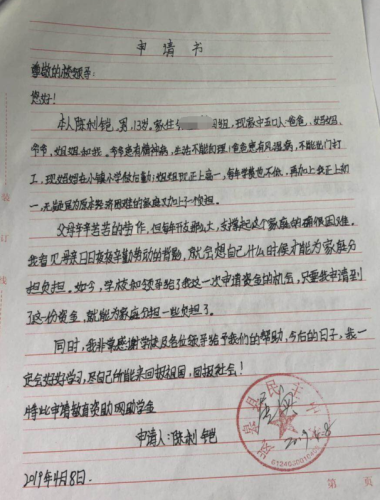 申请书
尊敬的校领导:
您好!
本人陈刹铠,男,13岁。家住 组,现家中五口人:爸爸,妈妈,
爷爷,姐姐和我。爷爷患有精神病,生活不能自理;爸爸患有风湿病,不能出门打
工,现妈妈在小镇小学做后勤;姐姐现正上高一,每年学费也不低,再加上我正上初
一,无疑是为原本经济困难的家庭又加上一沉担。
父母辛辛苦苦的劳作,但每年开支那么大,支撑起这个家庭的确很困难。
我看见母亲日日夜夜辛勤劳动的背影,就会想自己什么时候才能为家庭分
担负担。如今,学校和领导给了我这一次申请资金的机会,只要我申请到
了这份资金,就能为家庭分担一些负担了。
同时,我非常感谢学校及各位领导给予我们的帮助,今后的日子,我一
定会好好学习,尽自己所能来回报祖国,回报社会!
特此申请教育资助网助学金
申请人:陈刹铠
2019年4月8日.
2019.4.8
第 页
装
订
线